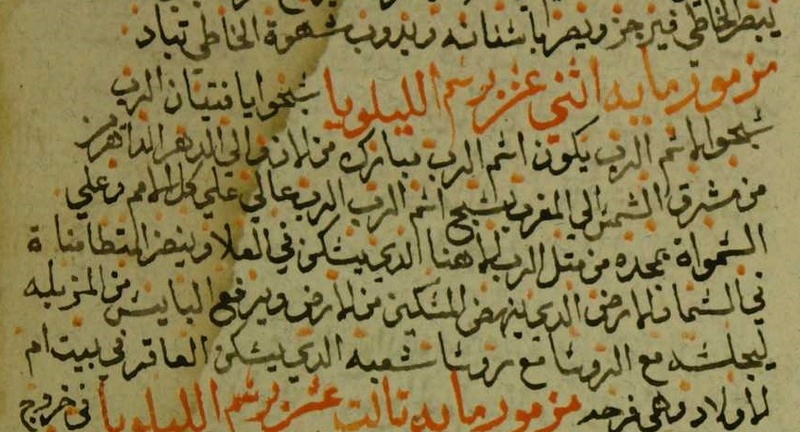 يبصر الخاطي فيرجز ويصر باسنانه ويدوب شهوة الخاطي تباد
مزمور مايه اثني عشر برسم الليلويا سبحوا يا فتيان الرب
سبحوا لاسم الرب يكون اسم الرب مبارك من الان والي الدهر الداهر من
من مشرق الشمس الي المغرب يسبح اسم الرب الرب عالي علي كل الامم وعلي
السمواة مجده من متل الرب الاهنا الدي يسكن في العلا وينضر المتطامناة
في السما والارض الدي ينهض المسكين من الارض ويرفع البايس من المزبله
ليجلسه مع الروسا مع روسا شعبه الدي يسكن العاقر في بيت ام
الاولاد وهي فرحه مزمور مايه تالت عشر برسم الليلويا في خروج